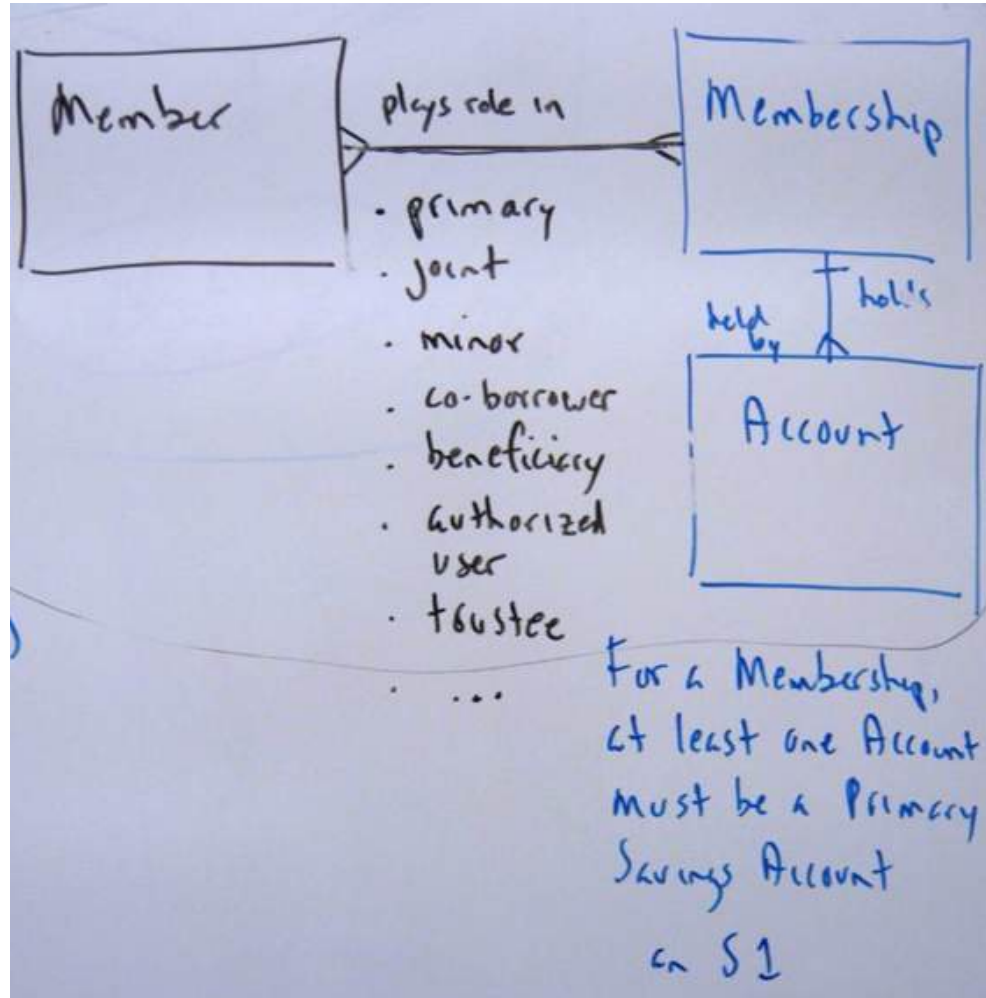 Member
plays role in
Membership
• primary
• joint
• minor
• co-borrower
• beneficiary
• authorized
user
• trustee
• ...
held
by
holds
Account
For a Membership,
at least one Account
must be a Primary
Savings Account
an S1